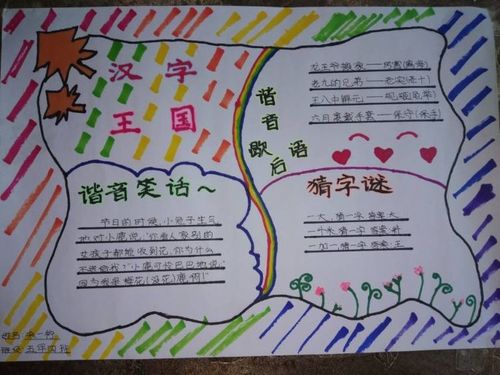 汉字
王国
谐音笑话～
节日的时候，小兔子生气
地对小鹿说："你看人家别的
女孩子都能收到花，你为什么
不送给我？"小鹿可怜巴巴地说：
因为我是梅花（没花）鹿啊！"
谐音
歇后语
老九的兄弟——老实（老十）
六月里戴手套——保守（保手）
猜字谜
一大，猜一字 答案：天
一个米 猜一字 答案：
一加一猜一字 答案：王
姓名：
班级：五年四班